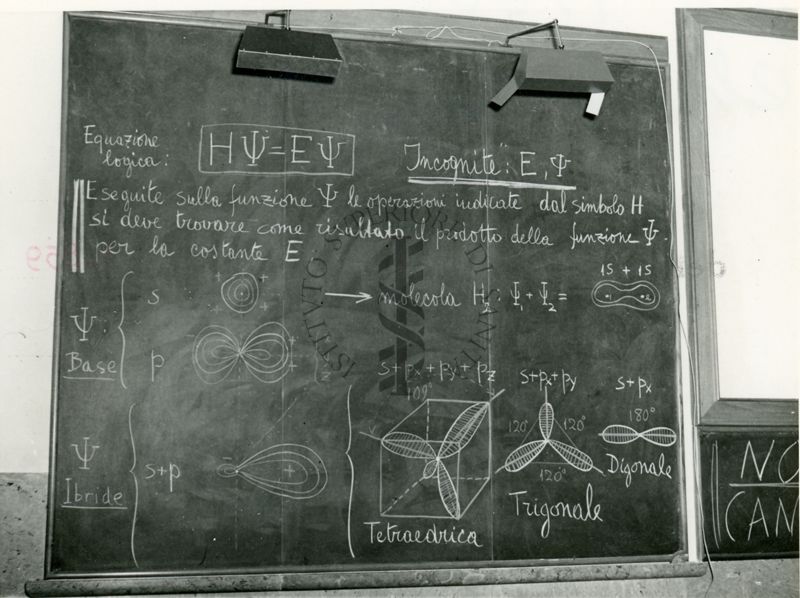 Equazione
logica:
HΨ=EΨ
"Incognite": E, Ψ
Eseguite sulla funzione Ψ le operazioni indicate dal simbolo H
si deve trovare come risultato il prodotto della funzione Ψ
per la costante E
Ψ
Base
s
+
+
p
+
+
molecola H₂: Ψ₁ + Ψ₂ =
1S + 1S
•1 •2
Ψ
Ibride
s+p
-
+
s+px+py+pz
109°
Tetraedrica
s+px+py
120°
120°
120°
Trigonale
s+px
180°
Digonale
NO
CAN
ISTITUTO SUPERIORE DI SANITÀ